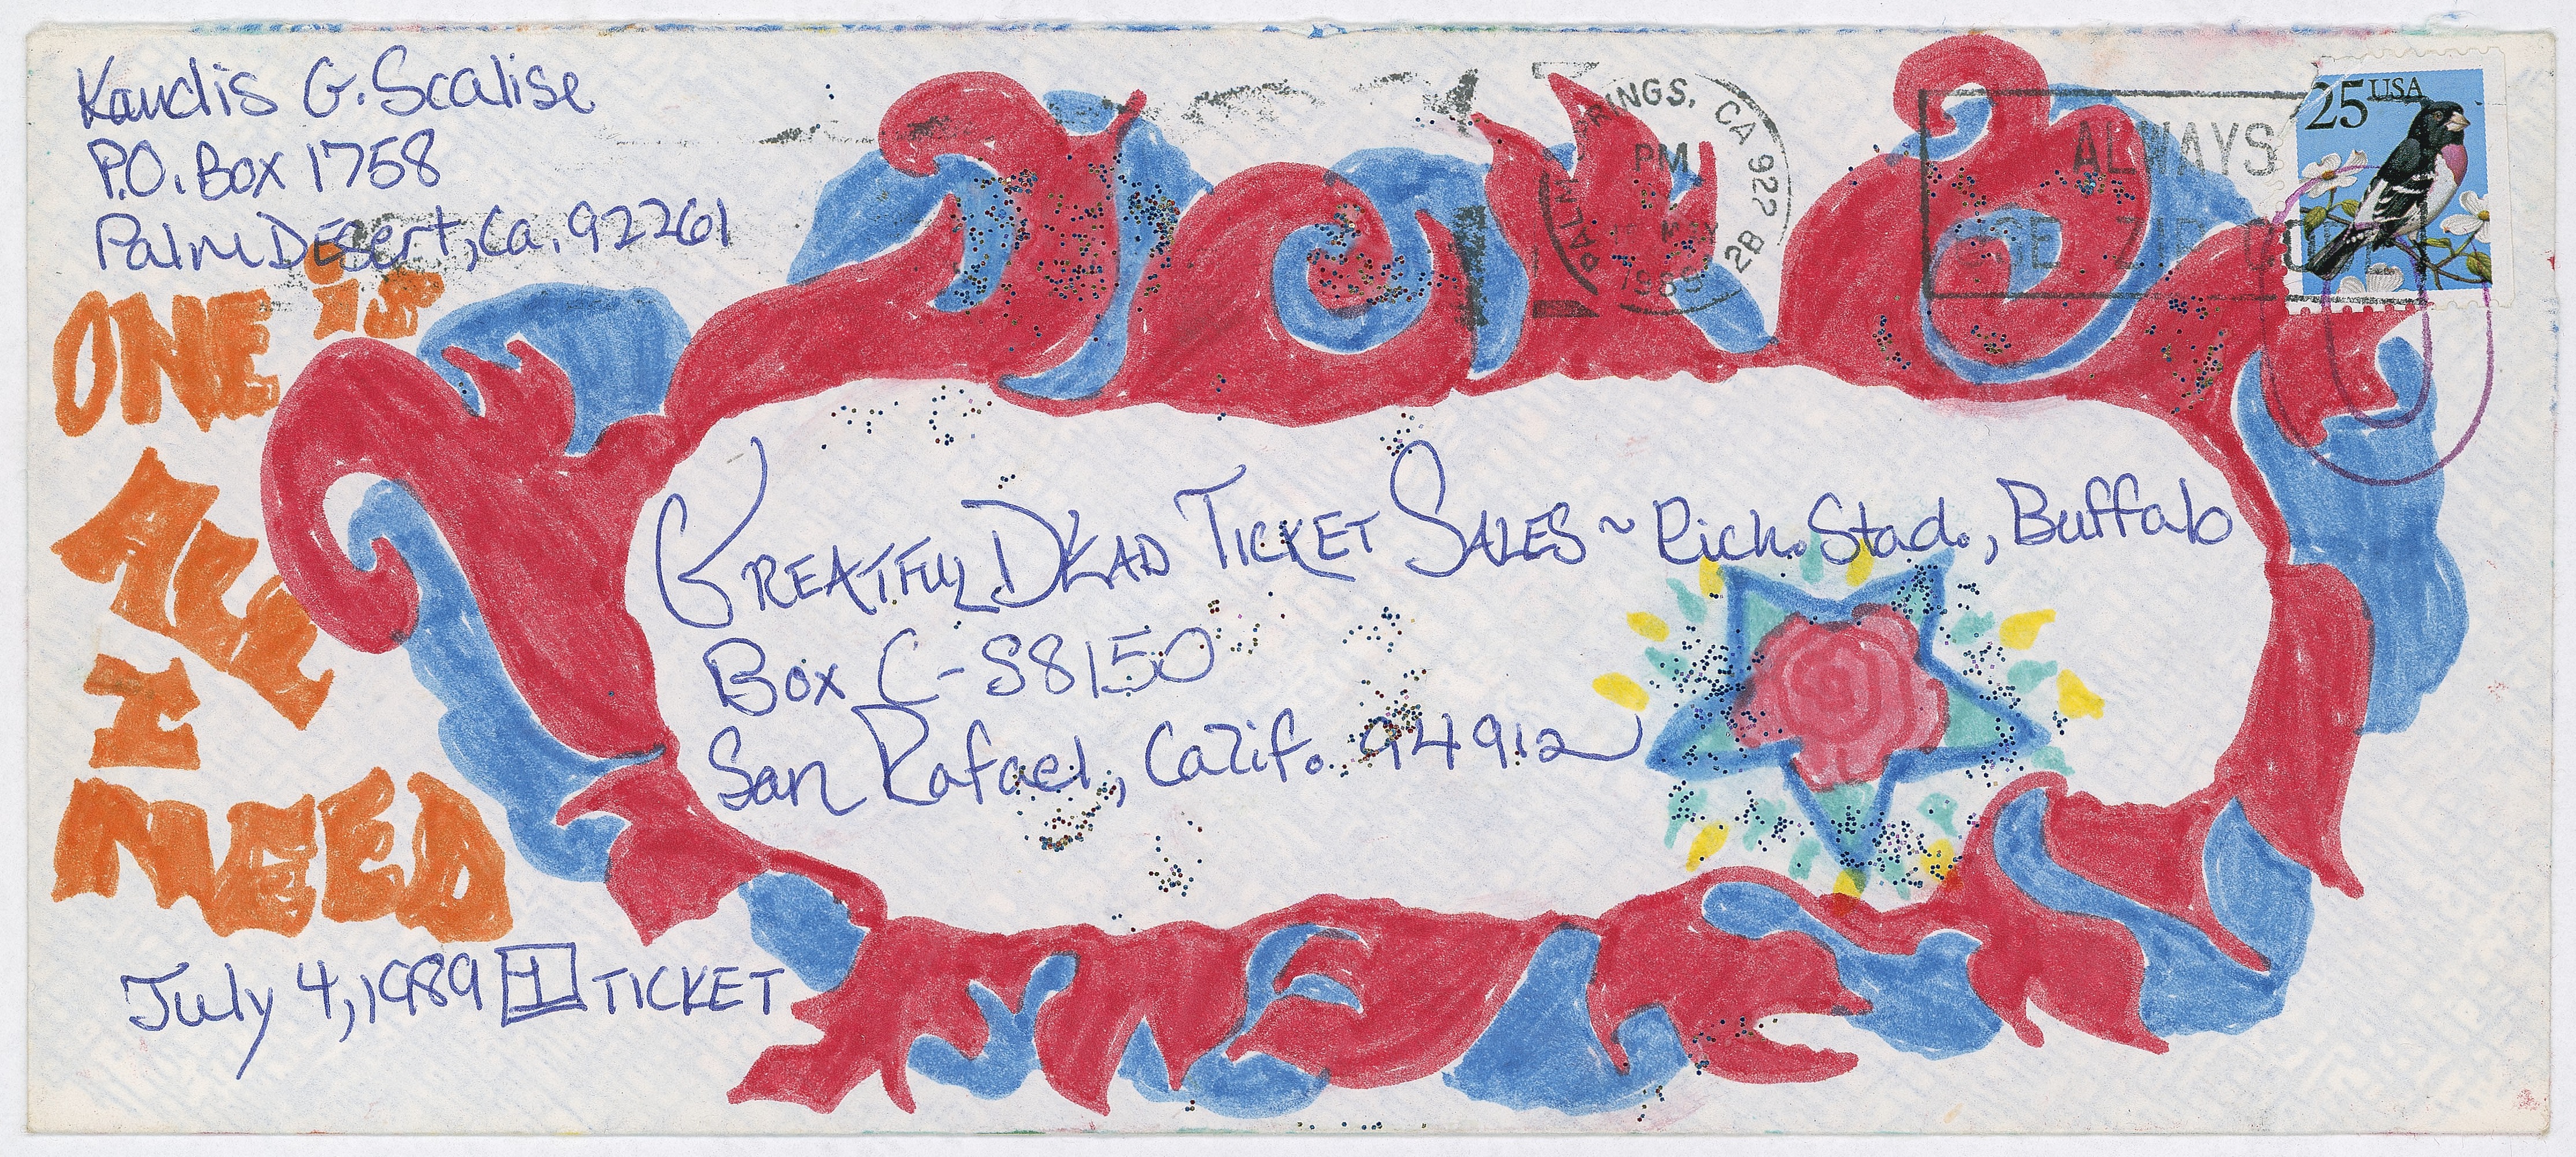 Kandis G. Scalise
P.O. Box 1758
Palm Desert, Ca. 92261
25 USA
PALM RINGS, CA 922
PM
MAY
1989
2B
ALWAYS
USE ZIP CODE
ONE is
ALL
I
NEED
GREATFUL DEAD TICKET SALES ~ Rich. Stad., Buffalo
Box C-S8150
San Rafael, Calif. 94912
July 4, 1989 1 TICKET